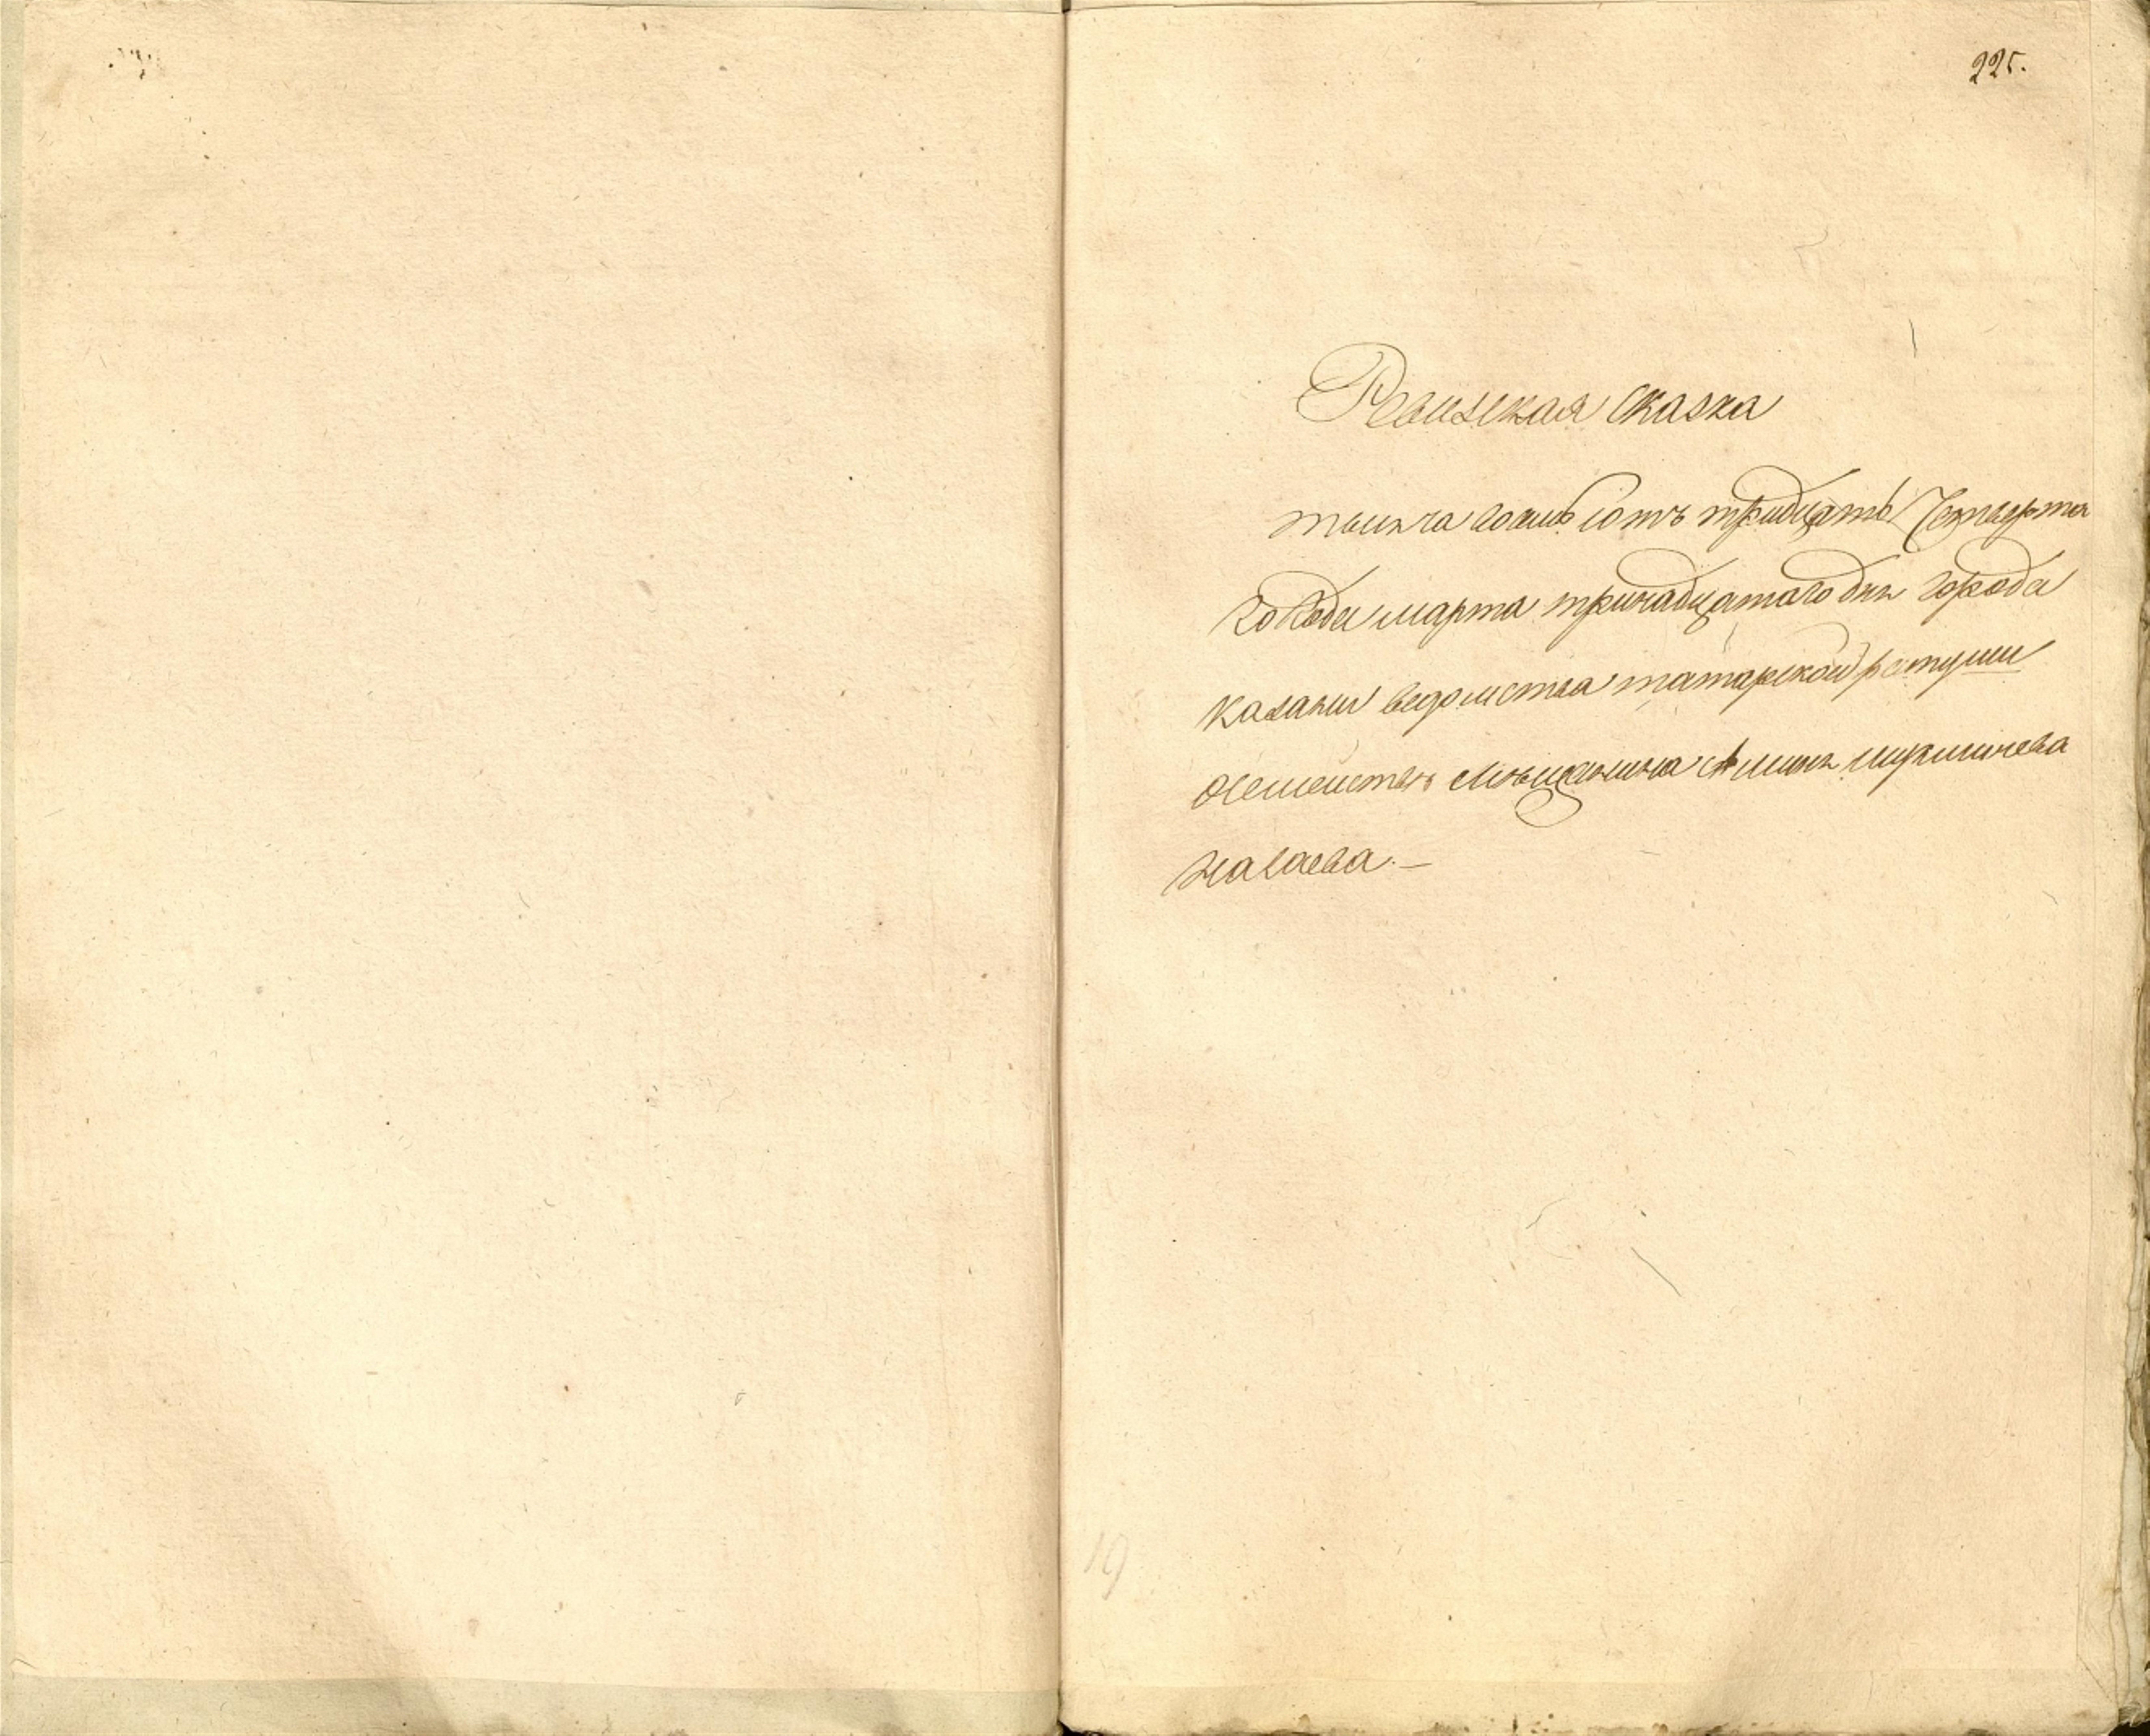 225.
Ревизская сказка
тысяча восемь сотъ тридцать Четверта
го Года марта тринадцатаго дня города
Казани ведомства татарской ратуши
Осемействе Мѣщанина
19